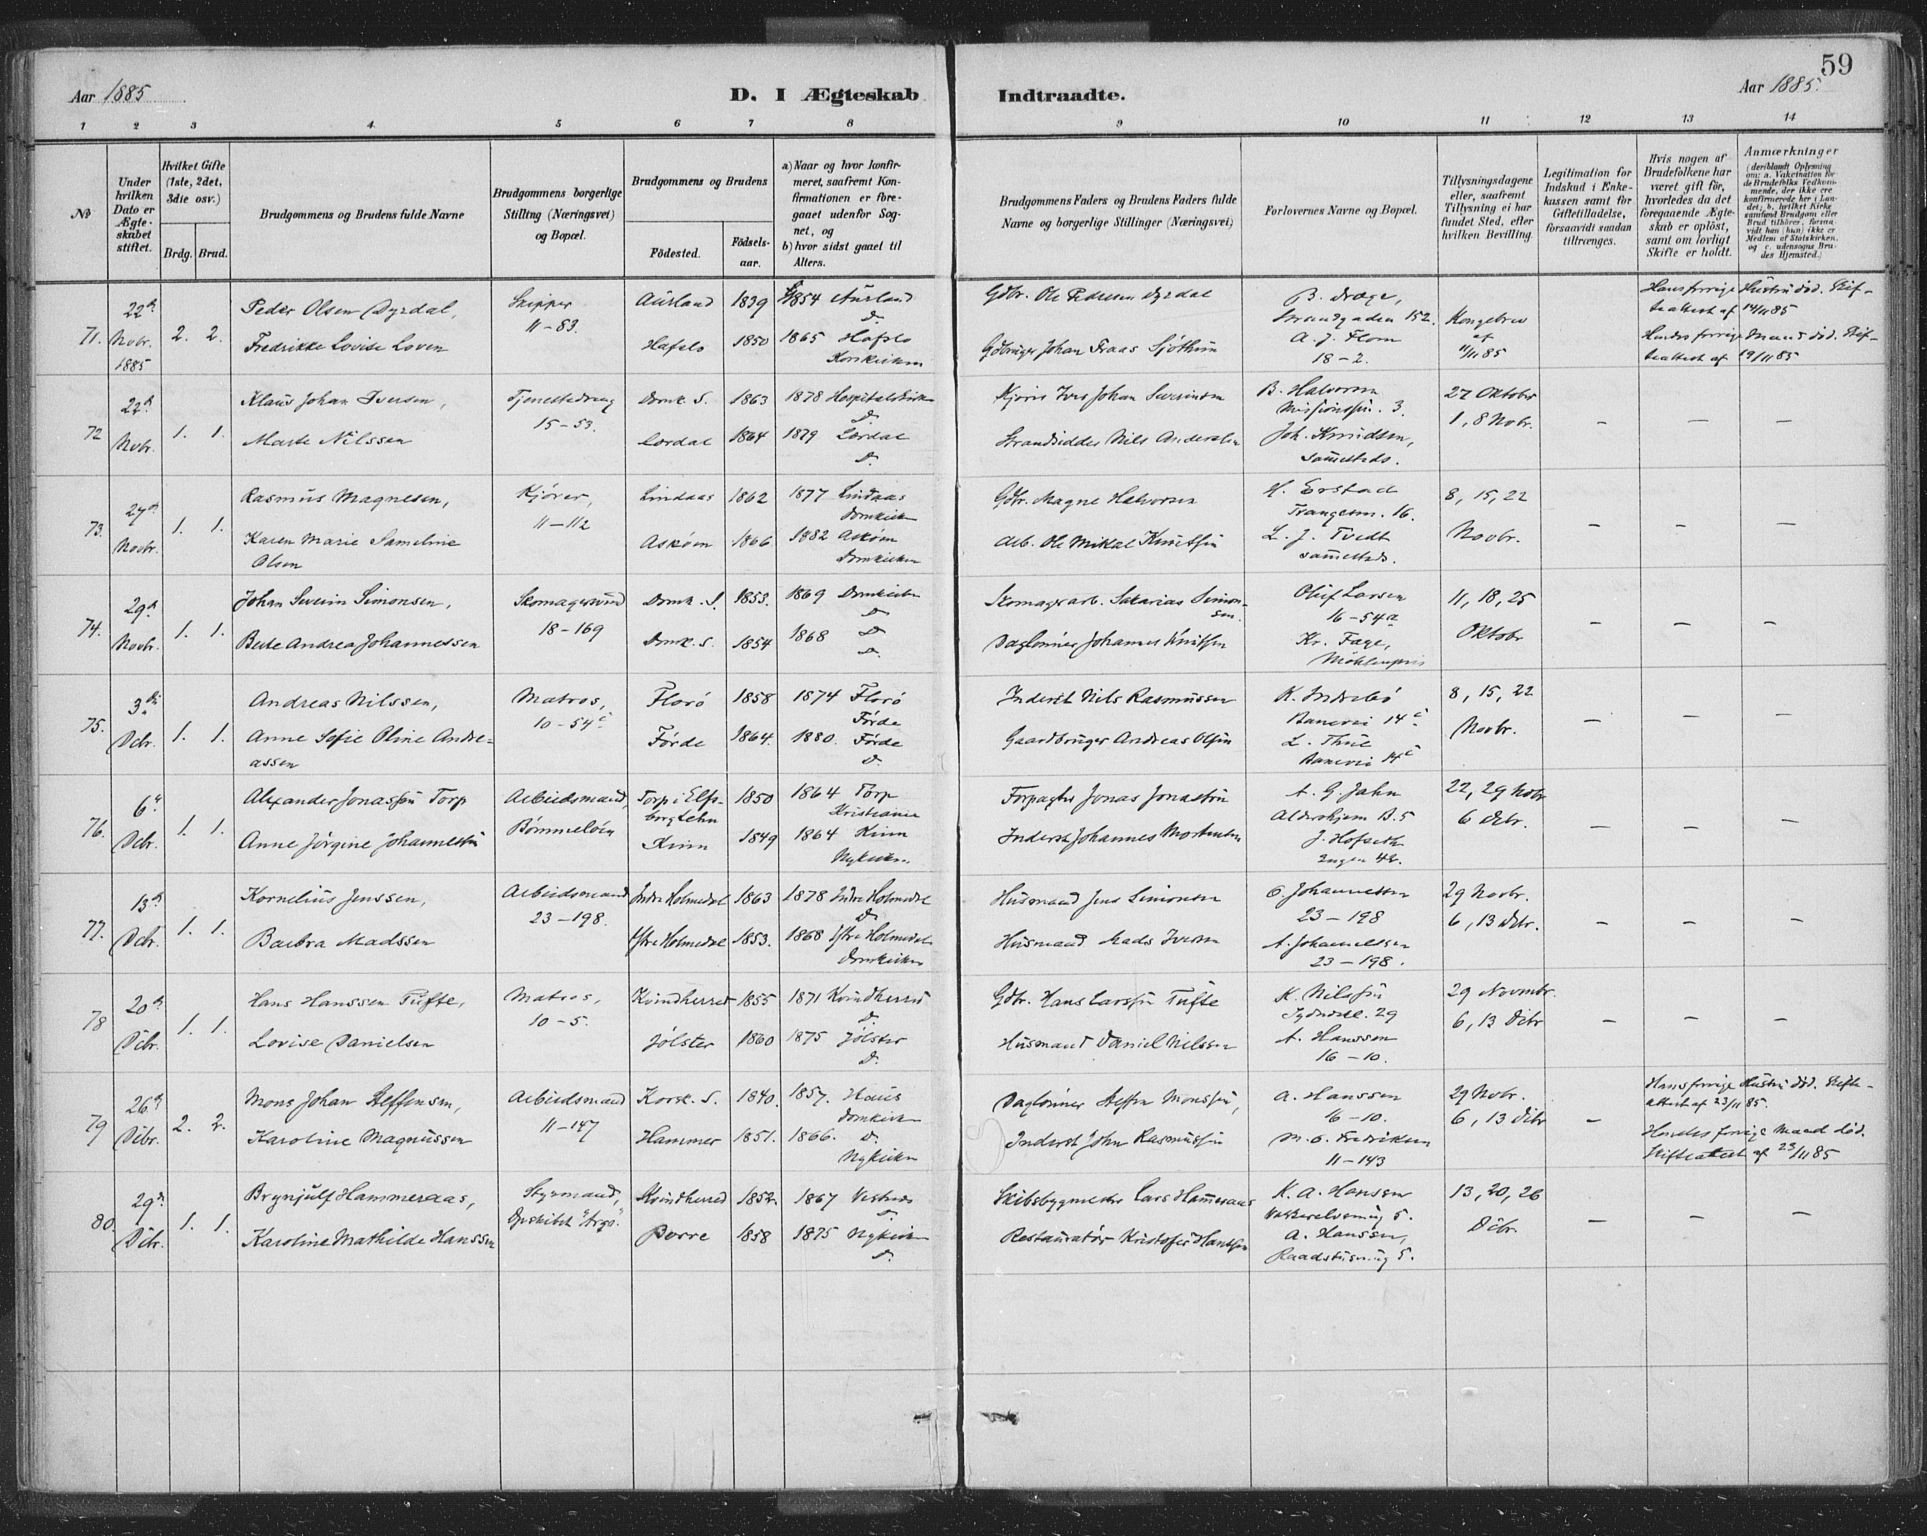 59
Aar 1885
D. I Ægteskab Indtraadte.
Aar 1885.
1 2 3 4 5 6 7 8 9 10 11 12 13 14
No
Under hvilken Dato er Ægteskabet stiftet.
Hvilket Gifte (1ste, 2det, 3die osv.)
Brdg. Brud.
Brudgommens og Brudens fulde Navne
Brudgommens borgerlige Stilling (Næringsvei) og Bopæl.
Brudgommens og Brudens
Födested.
Födselsaar.
a) Naar og hvor konfirmeret, saafremt Konfirmationen er foregaaet udenfor Sognet, og
b) hvor sidst gaaet til Alters.
Brudgommens Faders og Brudens Faders fulde Navne og borgerlige Stillinger (Næringsvei)
Forlovernes Navne og Bopæl.
Tillysningsdagene eller, saafremt Tillysning ei har fundet Sted, efter hvilken Bevilling
Legitimation for Indskud i Enkekassen samt for Giftetilladelse, forsaavidt saadan tiltrænges.
Hvis nogen af Brudefolkene har været gift før, hvorledes da det foregaaende Ægteskab er oplöst, samt om lovligt Skifte er holdt.
Anmærkninger
71. 22de Novbr. 1885 2. 2.
Peder Olsen Dyrdal, Skipper 11-83. Aurland 1839 1854 Aurland D.
Fredrikke Lovise Loven Hafslo 1850 1865 Hafslo Korskirken
Gdbr. Ole Pedersen Dyrdal B. Dræge, Strandgaden 152. Kongebrev af 11/11 85
Gdbruger Johan Fraas Sjøthun A. J. Flom 18-2.
Hans forrige Hustru død. Skifteattest af 14/11 85
Hendes forrige Mand død. Skifteattest af 19/11 85
72 Novbr. 1. 1.
Klaus Johan Iversen, Tjenestedreng 15-53. Domk. S. 1863 1878 Hospitalskirken D.
Marte Nilssen Lærdal 1864 1879 Lærdal D.
Johan Severinsen B. Halvorsen 3. 27 Oktober 1, 8 Novbr. - - -
Strandsidder Nils Anderssen Joh. Knudsen, sammesteds.
73. 27de Novbr. 1. 1.
Rasmus Magnesen, Kjører, 11-112 Lindaas 1862 1877 Lindaas Domkirken
Karen Marie Sameline Olsen Askøen 1866 1882 Askøen Domkirken
Gdbr. Magne Halvorsen H. Erstad 16. 8, 15, 22 Novbr. - - -
Arb. Ole Mikal Knutsen L. J. Tvedt sammesteds.
74. 29de Novbr. 1. 1.
Johan Severin Simonsen, Skomagersvend 18-169 Domk. S. 1853. 1869 Domkirken D
Berte Andrea Johannessen Domk. S. 1854 1868 D D.
Skomagerarb. Sakarias Simonsen Oluf Larsen 16-54a 11, 18, 25 Oktobr - - -
Daglønner Johannes Knutsen Kr. Fage, Møhlenpris
75. 3die Dcbr. 1. 1.
Andreas Nilssen, Matros, 10-54c Florø 1858 1874 Florø Førde
Anne Sofie Oline Andreassen Førde 1864. 1880. Førde D.
Inderst Nils Rasmussen K. Indrebø Banevei 14c 8, 15, 22 Novbr. - - -
Gaardbruger Andreas Olsen L. Thue Banevei 14c
76. 6te Dcbr. 1. 1.
Alexander Jonassen Torp Arbeidsmand, Bømmeløen Torp i Elfsborg Lehn 1850 1864 Torp Kristiania
Anne Jørgine Johannessen Kinn 1849 1864 Kinn Nykirken
Forpagter Jonas Jonassen A. G. Jahn Aldershjem B. 5 22, 29 Novbr 6 Dcbr. - - -
Inderst Johannes Mortensen J. Hofseth Engen 42.
77. 13de Dcbr. 1. 1.
Kornelius Jenssen, Arbeidsmand 23-198. Indre Holmedal 1863 1878 Indre Holmedal D.
Barbra Madssen Ytre Holmedal 1853. 1868 Ytre Holmedal Domkirken
Husmand Jens Simonsen O. Johannessen 23-198 29 Novbr. 6, 13 Dcbr. - - -
Husmand Mads Iversen A. Johannessen 23-198.
78 20de Dcbr. 1. 1.
Hans Hanssen Tufte, Matros, 10-5. Kvindherred 1855 1871 Kvindherred D.
Lovise Danielsen Jølster 1860 1875 Jølster D.
Gdbr. Hans Larssen Tufte K. Nilssen 29 29 Novembr. 6, 13 Dcbr - - -
Husmand Daniel Nilssen A. Hanssen 16-10.
79 26de Dcbr. 2. 2.
Mons Johan Steffensen, Arbeidsmand 11-147 Korsk. S. 1840. 1857. Haus Domkirken
Karoline Magnussen Hammer 1851. 1866. D. Nykirken
Daglønner Steffen Monssen, A. Hanssen 16-10. 29 Novbr. 6, 13 Dcbr -
Inderst John Rasmussen M. O. Fredriksen 11-143
Hans forrige Hustru død. Skifteattest af 23/11 85.
Hendes forrige Mand død. Skifteattest af 23/11 85
80 29de Dcbr. 1. 1.
Brynjulf Hammeraas, Styrmand, Dpskibet "Argo". Kvindherred 1852. 1867 D.
Karoline Mathilde Hanssen Borre 1858 1875 Nykirken D.
Skibsbygmester Lars Hammeraas K. A. Hansen 5. 13, 20, 26 Dcbr. - - -
Restauratør Kristofer Hanssen A. Hanssen, Raadstuesmug 5.